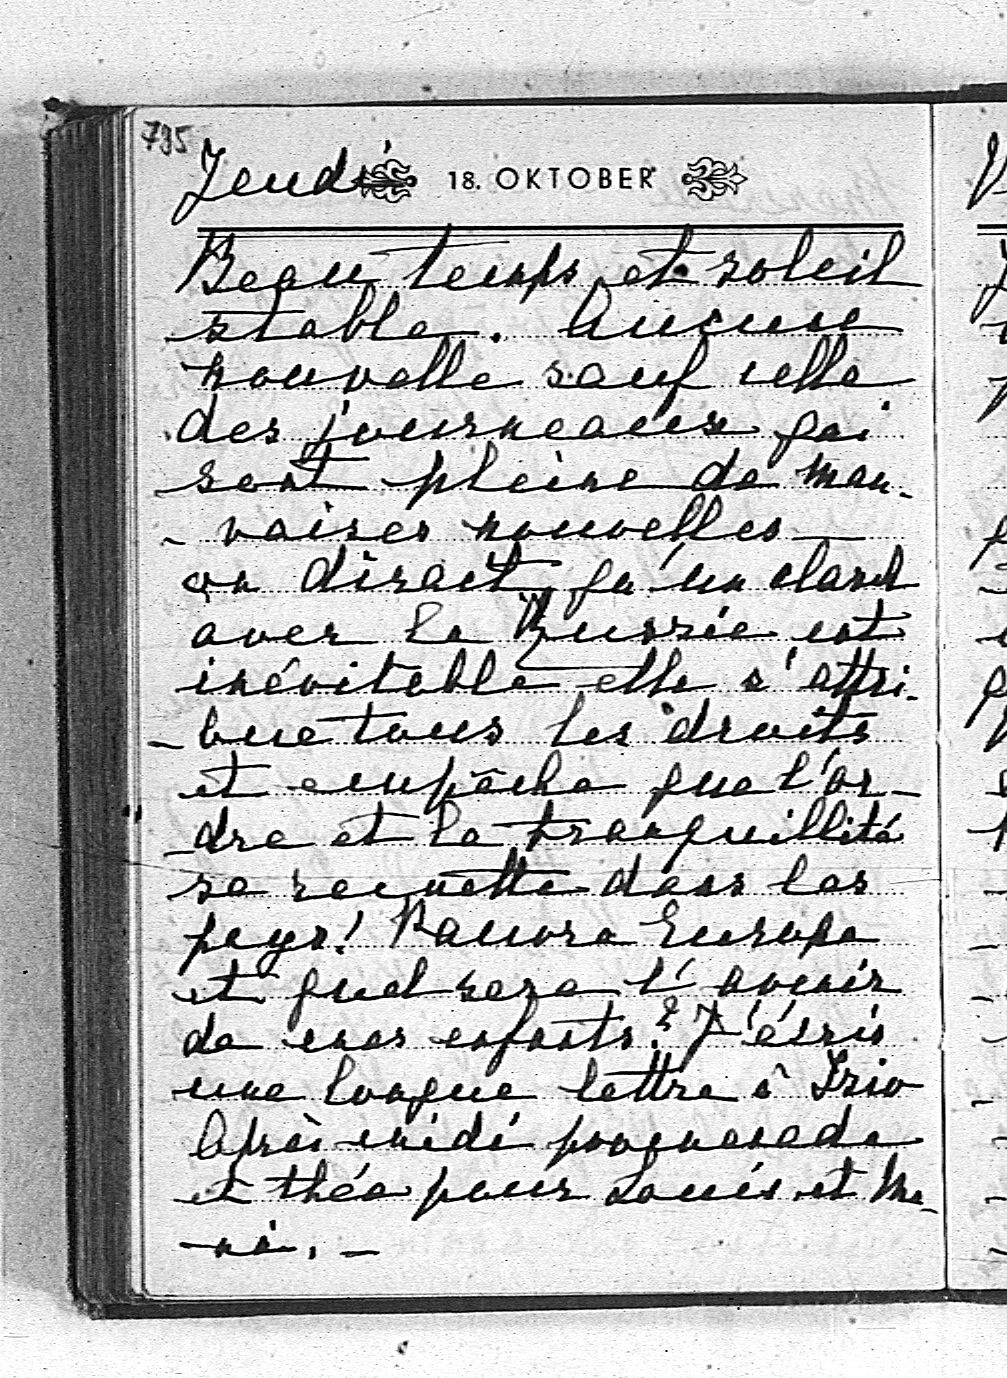 795
Jeudi 18. OKTOBER
Beau temps et soleil
stable. Aucune
nouvelle sauf celle
des journeaux qui
sont pleine de mau-
- vaises nouvelles —
on dirait qu'un clash
avec la Russie est
inévitable elle s'attri-
- bue tous les droits
et empêche que l'or-
dre et la tranquillité
se remette dans les
pays! Pauvre Europe
et quel sera l'avenir
de mes enfants? J'écris
une longue lettre à
Après midi promenade
et thée pour Louis et Me-
- né. —